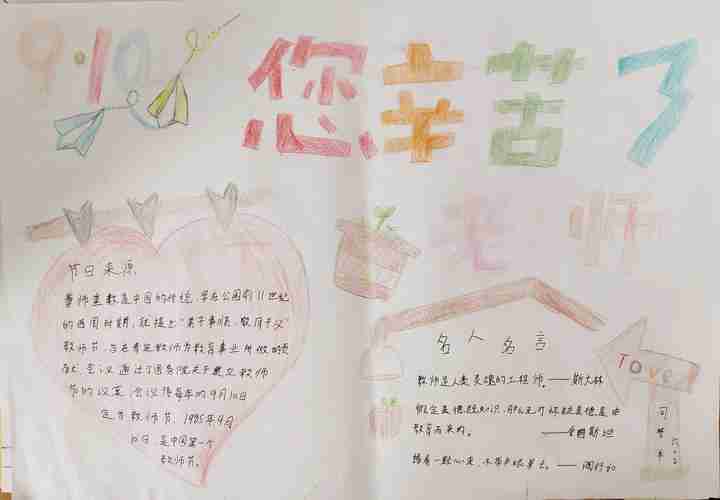 9·10
您辛苦了
老师
节日来源
尊师重教是中国的传统,早在公园前11世纪
的西周时期,就提出"弟子事师,敬同于父"
教师节,旨在肯定教师为教育事业所做的贡
献。会议通过了国务院关于建立教师
节的议案,会议将每年的9月10日
定为教师节,1985年9月
10日,是中国第一个
教师节。
名人名言
教师是人类灵魂的工程师。——斯大林
假定美德既知识,那么无可怀疑美德是由
教育而来的。
捧着一颗心来,不带半根草去。——陶行知
Tove